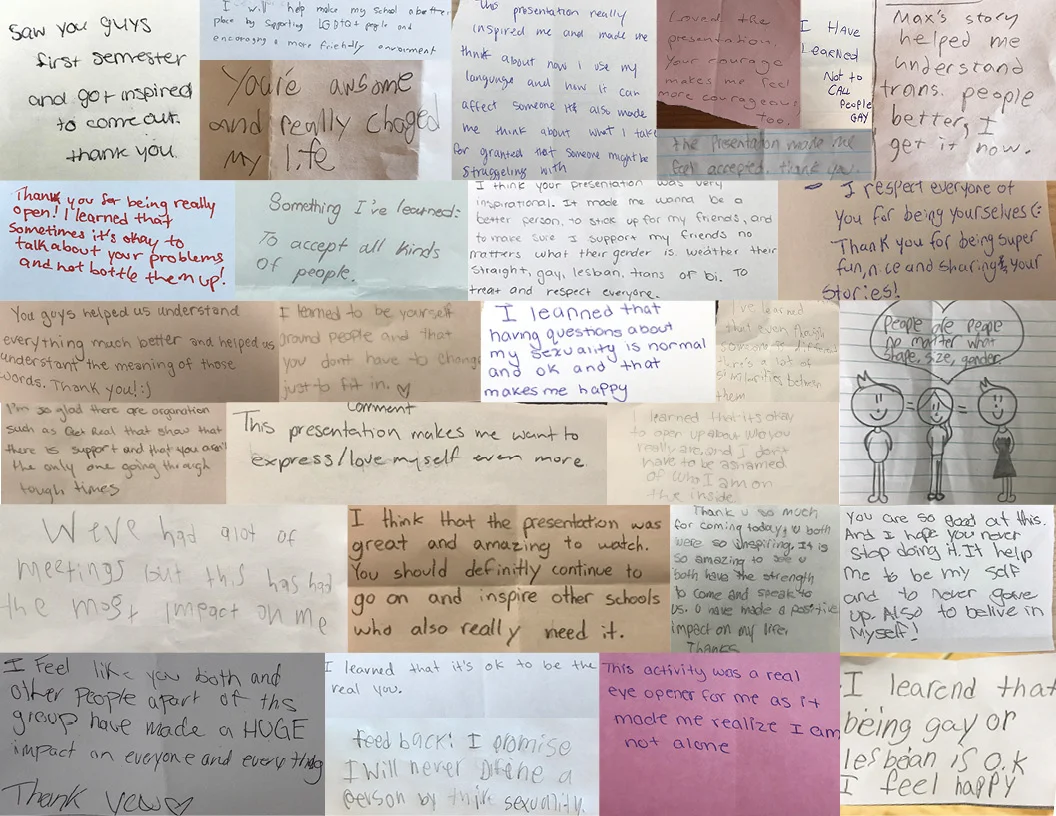 Saw you guys
first semester
and got inspired
to come out.
thank you.
I will help make my school a better
place by supporting LGBTQ+ people and
encouraging a more friendly environment
You're awsome
and really chaged
my life
this presentation really
inspired me and made me
think about how I use my
language and how it can
affect someone. It also made
me think about what I take
for granted that someone might be
struggeling with
Loved the
presentation,
Your courage
makes me feel
more courageous
too.
I HAVE
LEARNED
NOT to
CALL
PEOPLE
GAY
the presentation made me
feel accepted. thank you.
Max's story
helped me
understand
trans. people
better, I
get it now.
Thank you for being really
open! I learned that
sometimes it's okay to
talk about your problems
and not bottle them up!
Something I've learned:
To accept all kinds
of people.
I think your presentation was very
inspirational. It made me wanna be a
better person, to stick up for my friends, and
to make sure I support my friends no
matters what their gender is. weather their
straight, gay, lesban, trans or bi. To
treat and respect everyone.
I respect everyone of
you for being yourselves (:
Thank you for being super
fun, nice and sharing your
stories!
You guys helped us understand
everything much better and helped us
understant the meaning of those
words. Thank you! :)
I learned to be yourself
ground people and that
you dont have to change
just to fit in. ♡
I learned that
having questions about
my sexuality is normal
and ok and that
makes me happy
I've learned
that even though
someone is different
there's a lot of
similarities between
them
People are people
no matter what
shape, size, gender.
= =
I'm so glad there are organation
such as Get Real that show that
there is support and that you aren't
the only one going through
tough times
Comment
This presentation makes me want to
express/love myself even more.
I learned that its okay
to open up about who you
really are, and I don't
have to be ashamed
of who I am on
the inside
Weve had alot of
meetings but this has had
the most impact on me
I think that the presentation was
great and amazing to watch.
You should definitly continue to
go on and inspire other schools
who also really need it.
Thank u so much
for coming today, u both
were so inspiring, It is
so amazing to see u
both have the strength
to come and speak to
us. U have made a positive
impact on my life!
Thanks
You are so good at this.
And I hope you never
stop doing it. It help
me to be my self
and to never gave
up. Also to belive in
Myself!
I Feel like you both and
other people apart of this
group have made a HUGE
impact on everyone and everything
Thank you ♡
I learned that it's ok to be the
real you.
feed back: I promise
I will never define a
person by thire sexuality.
This activity was a real
eye opener for me as it
made me realize I am
not alone
I learend that
being gay or
lesbean is O.K
I feel happy